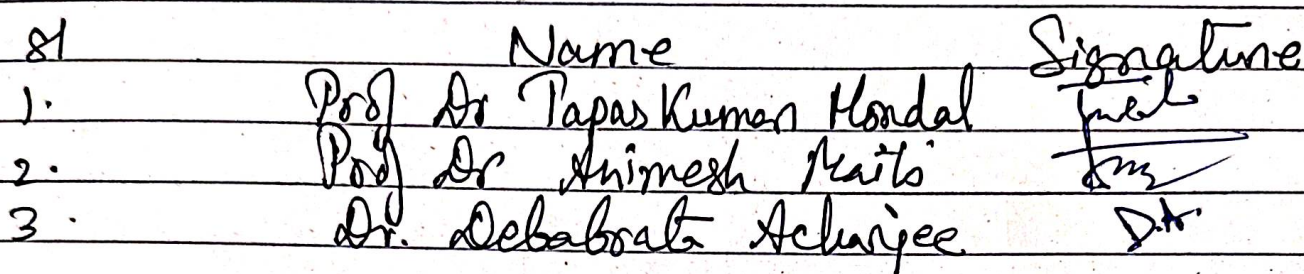 Sl Name Signature
1. Prof Dr Tapas Kumar Mondal
2. Prof Dr Animesh Maiti
3. Dr. Debabrata Acharjee D.A.